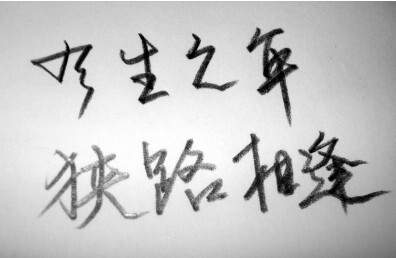 有生之年
狭路相逢